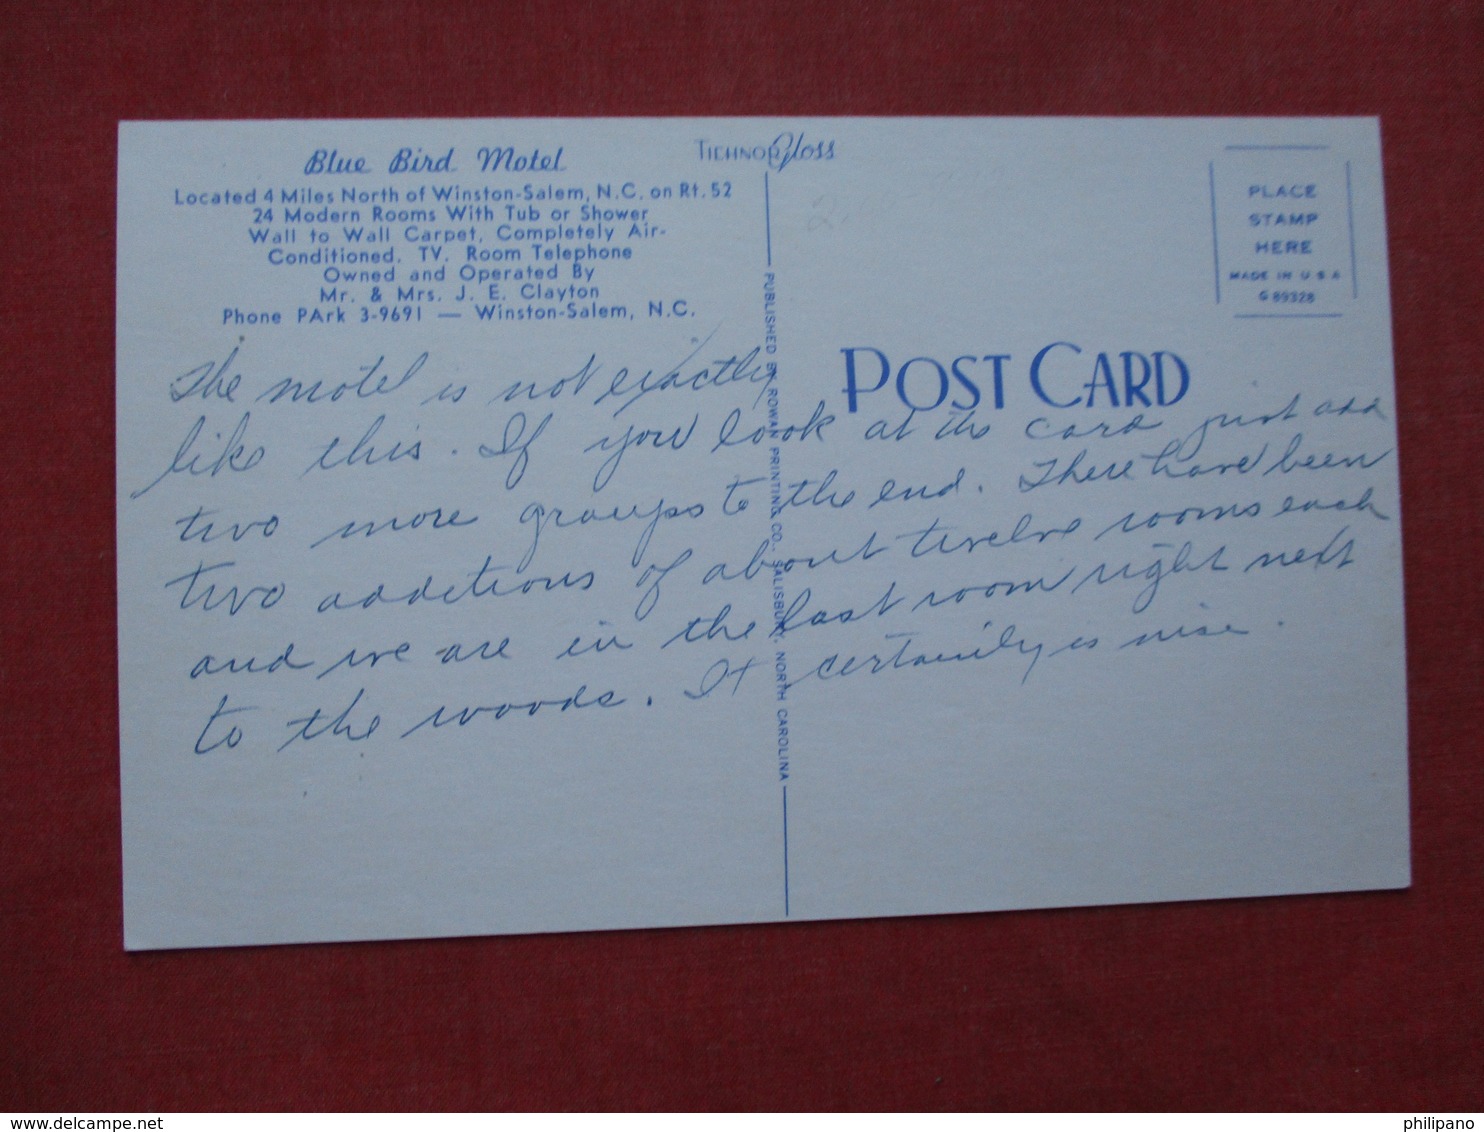 Blue Bird Motel
Located 4 Miles North of Winston-Salem, N.C. on Rt. 52
24 Modern Rooms With Tub or Shower
Wall to Wall Carpet, Completely Air-
Conditioned. TV. Room Telephone
Owned and Operated By
Mr. & Mrs. J. E. Clayton
Phone PArk 3-9691 — Winston-Salem, N.C.
TICHNOR Gloss
PLACE
STAMP
HERE
MADE IN U S A
G 89328
POST CARD
PUBLISHED BY ROWAN PRINTING CO., SALISBURY, NORTH CAROLINA
The motel is not exactly
like this. If you look at the card just add
two more groups to the end. There have been
two additions of about twelve rooms each
and we are in the last room right next
to the woods. It certainly is nise.
philipano
delcampe.net